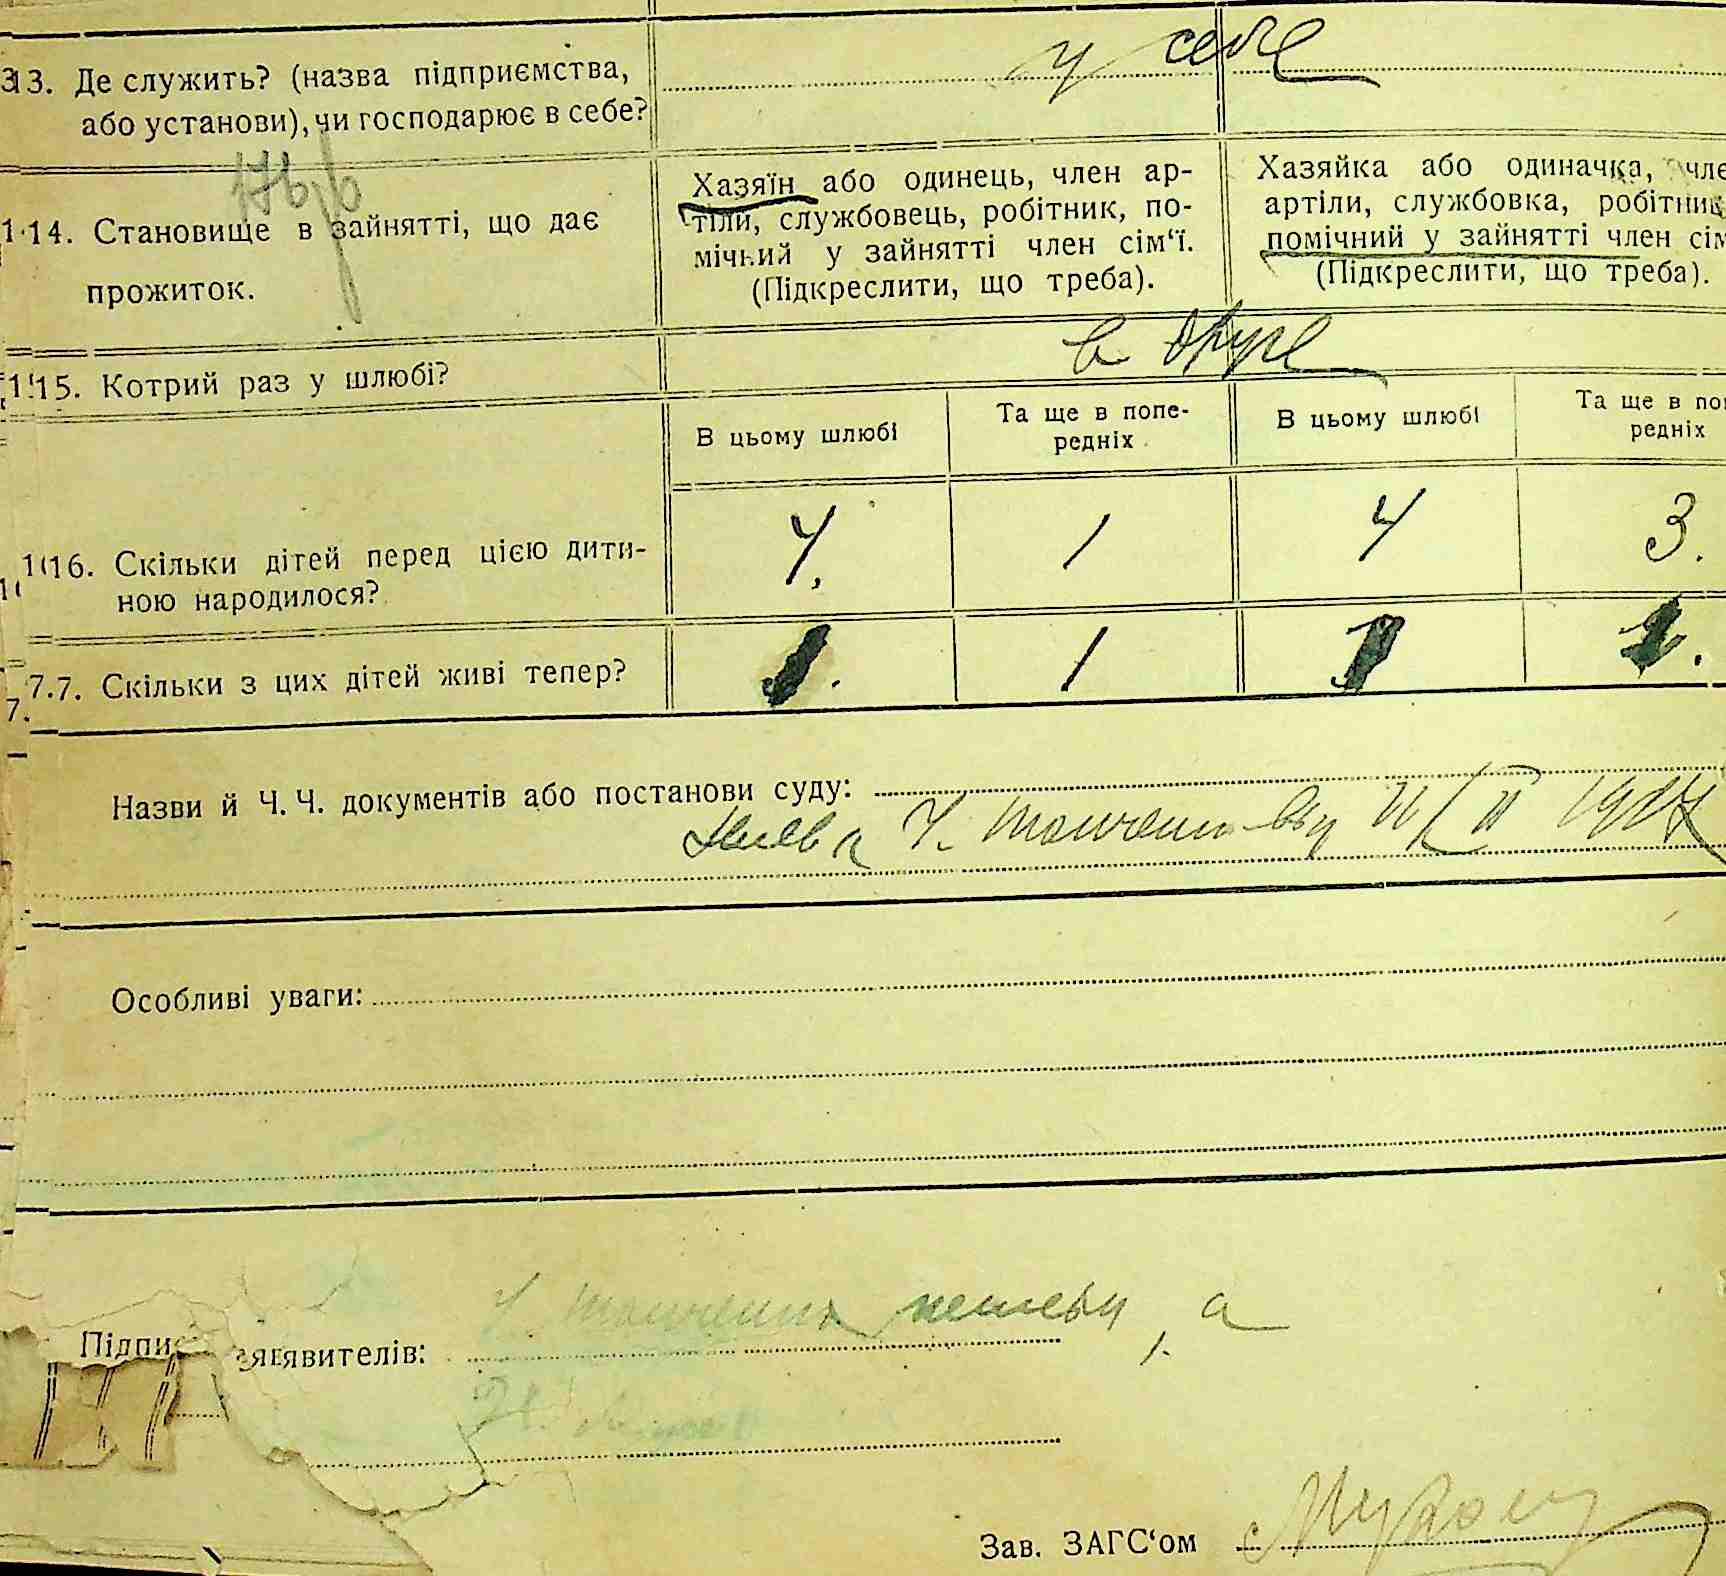 у себе
13. Де служить? (назва підприємства,
або установи), чи господарює в себе?
14. Становище в зайнятті, що дає
прожиток.
Хазяїн або одинець, член ар-
тіли, службовець, робітник, по-
мічний у зайнятті член сім‘ї.
(Підкреслити, що треба).
Хазяйка або одиначка, чле
артіли, службовка, робітниц
помічний у зайнятті член сім
(Підкреслити, що треба).
15. Котрий раз у шлюбі?
в друге
В цьому шлюбі
Та ще в попе-
редніх
В цьому шлюбі
Та ще в поп
редніх
16. Скільки дітей перед цією дити-
ною народилося?
4. 1 4 3.
7. Скільки з цих дітей живі тепер?
1
Назви й Ч. Ч. документів або постанови суду:
1927
Особливі уваги:
Підпис заявителів:
Зав. ЗАГС‘ом